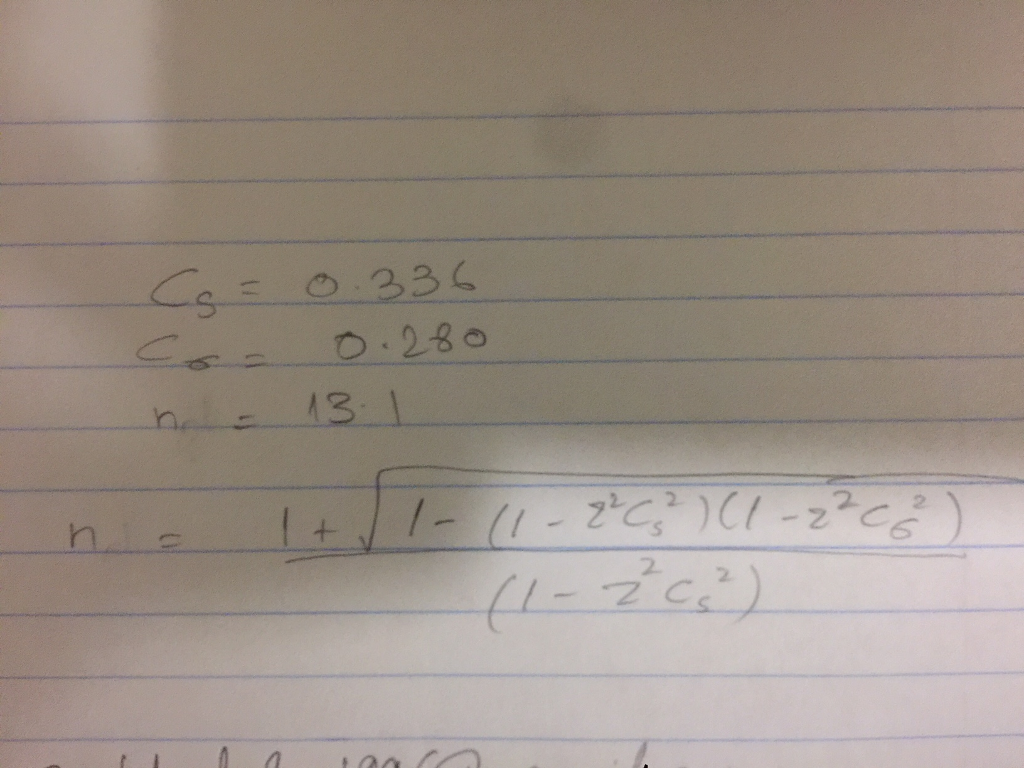 Cₛ = 0.336
C_σ = 0.280
n = 13.1
n = 1 + √(1 - (1 - z²Cₛ²)(1 - z²C₆²)) / (1 - z²Cₛ²)